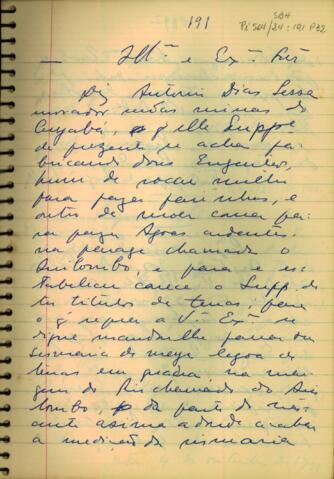 191
SBH
Pi 541/24 : 191 P32
— Illº e Exº Snr
Diz Antonio Dias Lessa
morador nestas minas do
Cuyabá, q elle Suppe
de prezente se acha fa-
bricando dois Engenhos,
hum de socar milho
para fazer farinhas, e
outro de moer canna pa-
ra fazer Agoas ardentes
na paragé chamada o
Quilombo, e para se es-
tabelecer carece o Supp. de
ter titulos de terras; para
o q requer a V. Exª se
digne mandarlhe passar sua
Sesmaria de meya legoa de
terras em quadra na mar-
gem do Rio chamado do Qui-
lombo, da parte do nas-
cente asima adonde acabar
a medição da sismaria